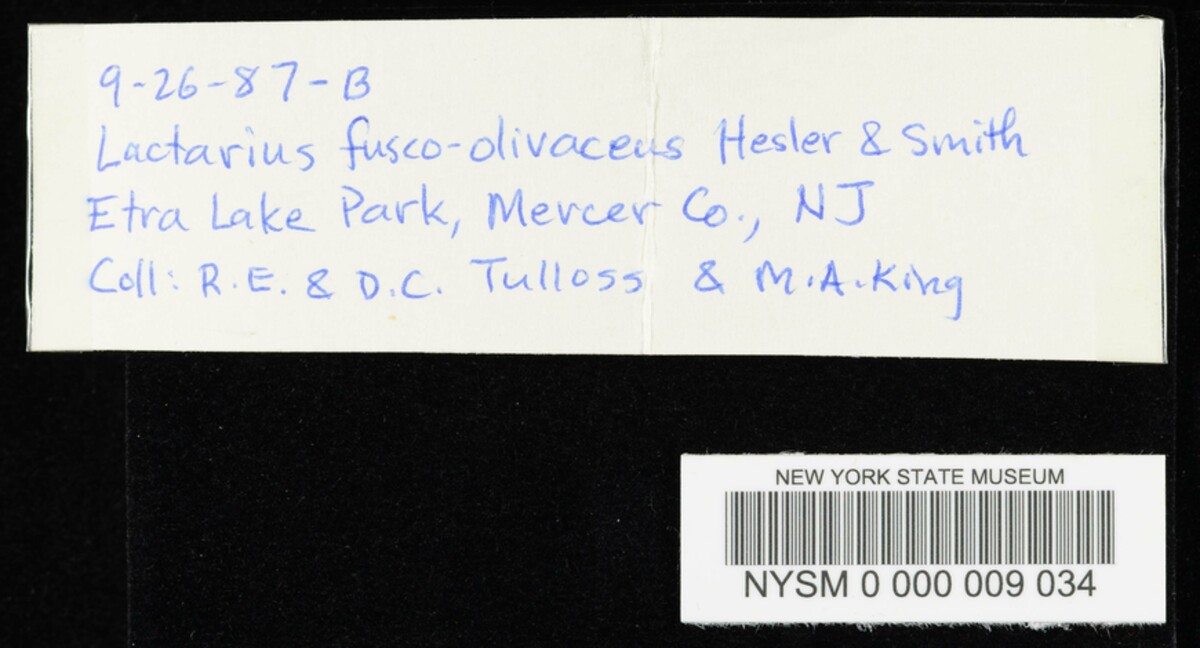 9-26-87-B
Lactarius fusco-olivaceus Hesler & Smith
Etra Lake Park, Mercer Co., NJ
Coll: R.E. & D.C. Tulloss & M.A.King
NEW YORK STATE MUSEUM
NYSM 0 000 009 034